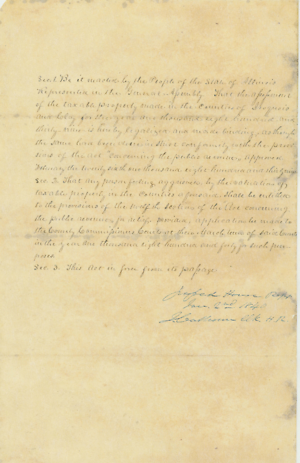 Sec 1. Be it enacted by the People of the State of Illinois
Represented in the General Assembly That the assessment
of the taxable property made in the Counties of Iroquois
and for the year one thousand eight hundred and
thirty nine is hereby legalized and made binding as though
the same had been done in strict conformity with the provis
ions of the act Concerning the public revenue, approved
February the twenty sixth one thousand eight hundred and thirty nine
Sec 2. That any person feeling aggrieved by the valuation of
taxable property in the Counties aforesaid Shall be entitled
to the provisions of the twelfth section of the Act concerning
the public revenue, for relief provided, application be made to
the County Commissioners Court of their Counties of said County
in the year one thousand eight hundred and forty for such pur
poses
Sec 3. This Act in force from its passage.
Passed House Reps
Jany 2nd 1840
Clk H.R.